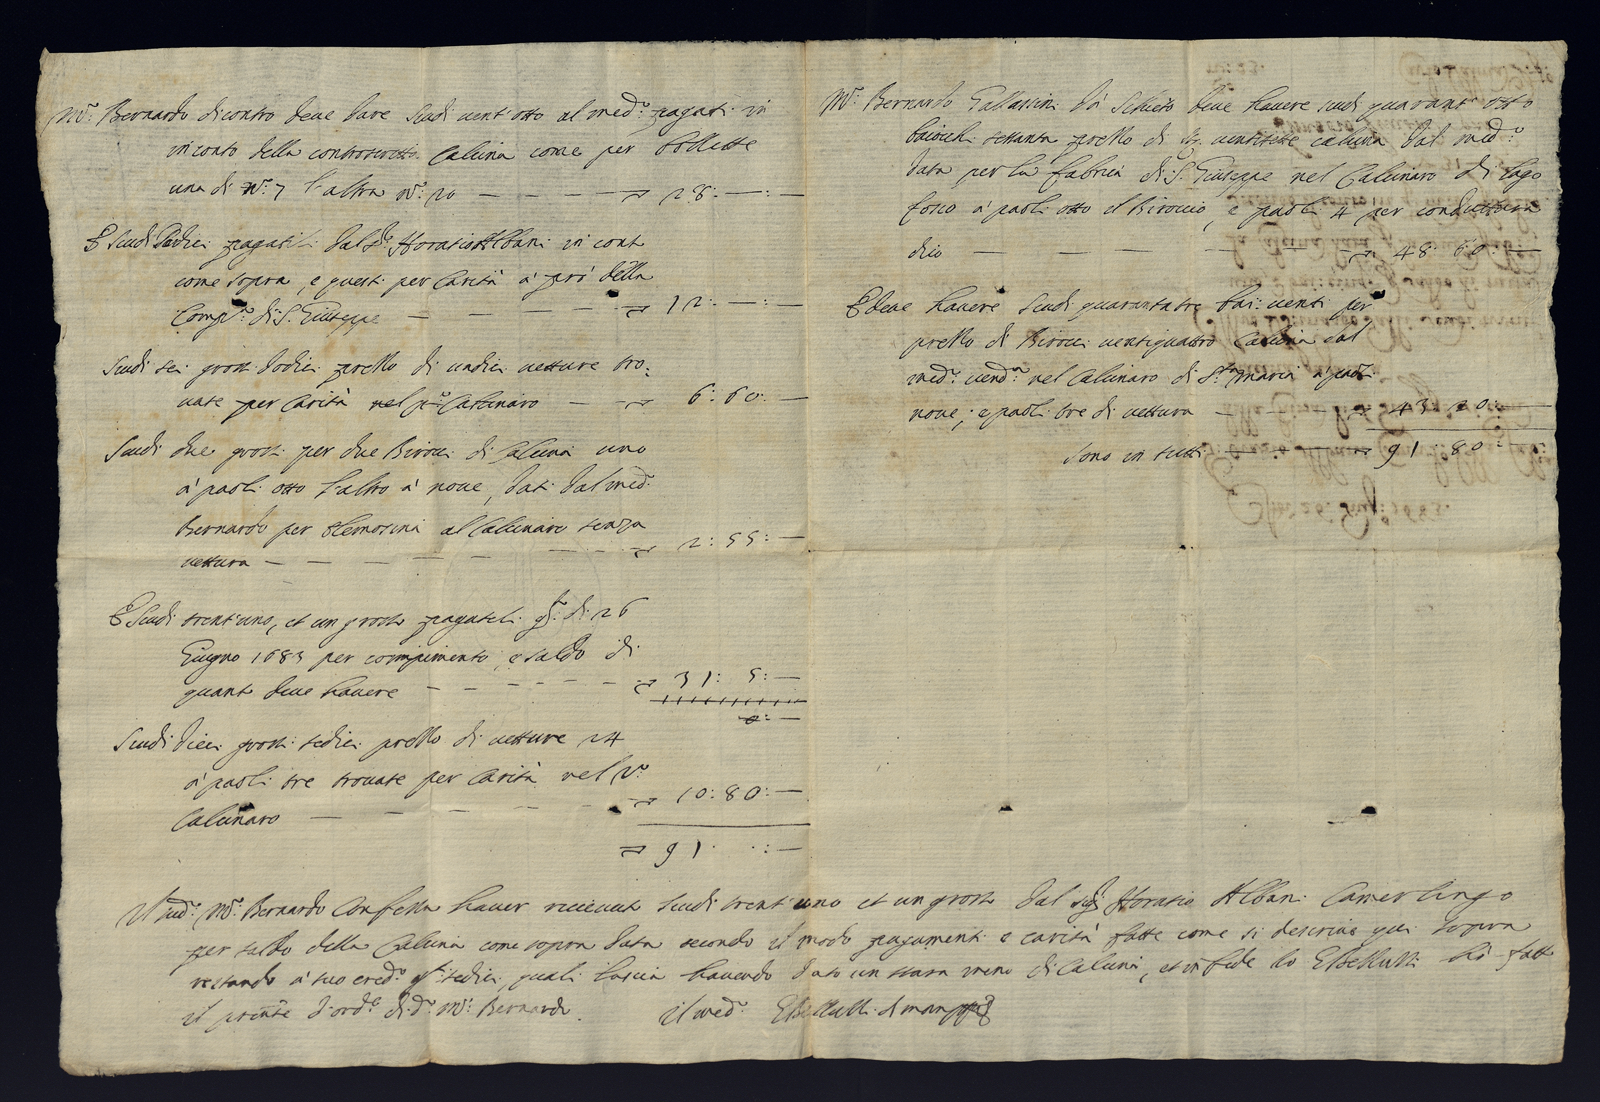 Mr: Bernardo dicontro deve dare scudi vent'otto al med:o pagati in
in conto della controscritta Calcina come per bollette
una di No: 7 l'altra no: 20 — — — — 28: — : —
E Scudi Dodici pagatili dal Sr Horatio Albani in cont
come sopra, e questi per Carità à prò della
Comp:a di S. Giuseppe — — — — 12: — : —
Scudi sei grossi dodici prezzo di undici vetture tro:
vate per Carità nel po Calcinaro — — 6: 60: —
Scudi due grossi per due Birocci di Calcina uno
à paoli otto l'altro à nove, dati dal med:
Bernardo per elemosina al Calcinaro senza
vettura — — — — 2: 55: —
E Scudi trent'uno, et un grosso pagatili di 26
Giugno 1683 per compimento, e saldo di
quanto deve havere — — — — 31: 5: —
0: —
Scudi dieci grossi sedici prezzo di vetture 24
à paoli tre trovate per Carità nel 2o
Calcinaro — — — — 10: 80: —
91 · · : —
Mr: Bernardo Gallassini da deve havere scudi quarant'otto
baiocchi sessanta prezzo di ventisette calcina dal med:o
data per la fabrica di S. Giuseppe nel Calcinaro di Lago
fosco à paoli otto il Biroccio, e paoli 4 per conduttura
dico — — — — 48: 60: —
E deve havere scudi quarantatre bai: venti per
prezzo di Birocci ventiquattro Calcina dal
med:o vend:a nel Calcinaro di S:ta Maria à paoli
nove; e paoli tre di vettura — — — — 43 20: —
Sono in tutti — — — — 91: 80: —
Il sud:o Mr: Bernardo Confessa haver ricevuti Scudi trent'uno et un grosso dal sigr Horatio Albani Camerlingo
per saldo della Calcina come sopra data secondo il modo pagamenti e carità fatte come si descrive qui sopra
restando à suo cred:o sedici, quali lascia havendo dato un stara meno di Calcina, et in fede Io EBellutti hò fatto
il pnte d'ord:e di d:o Mr: Bernardo. Il med:o EBellutti